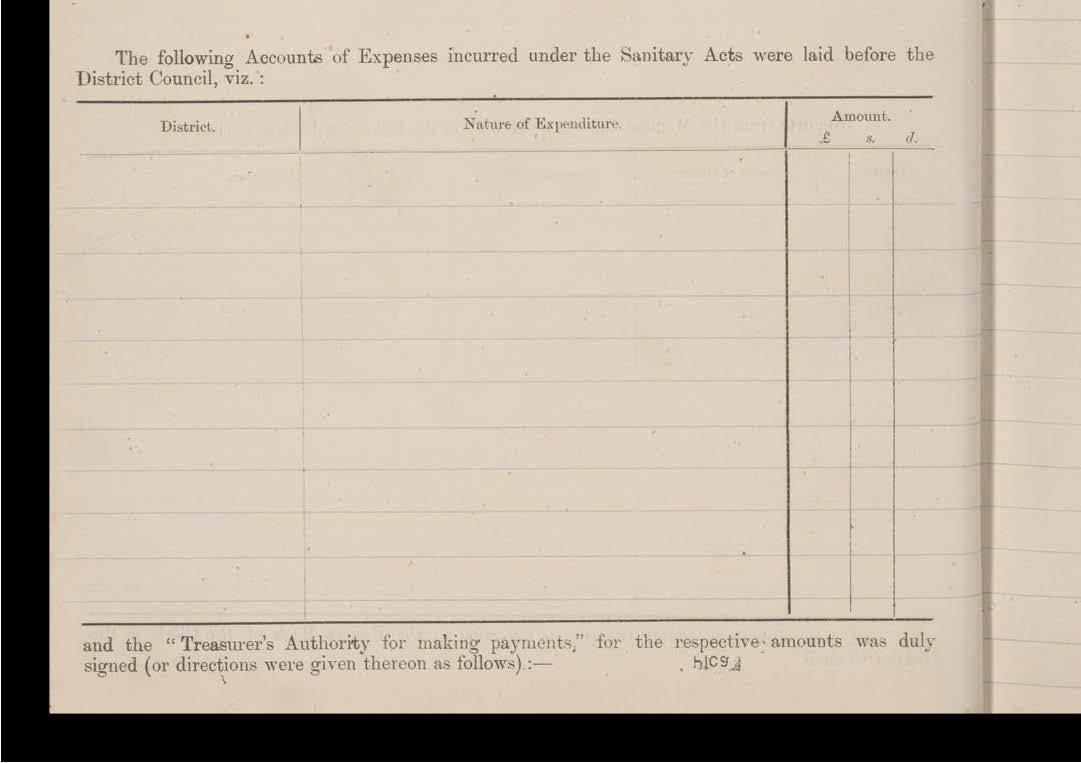 The following Accounts of Expenses incurred under the Sanitary Acts were laid before the
District Council, viz. :
District. Nature of Expenditure. Amount.
£ s. d.
and the “Treasurer's Authority for making payments,” for the respective amounts was duly
signed (or directions were given thereon as follows) :—